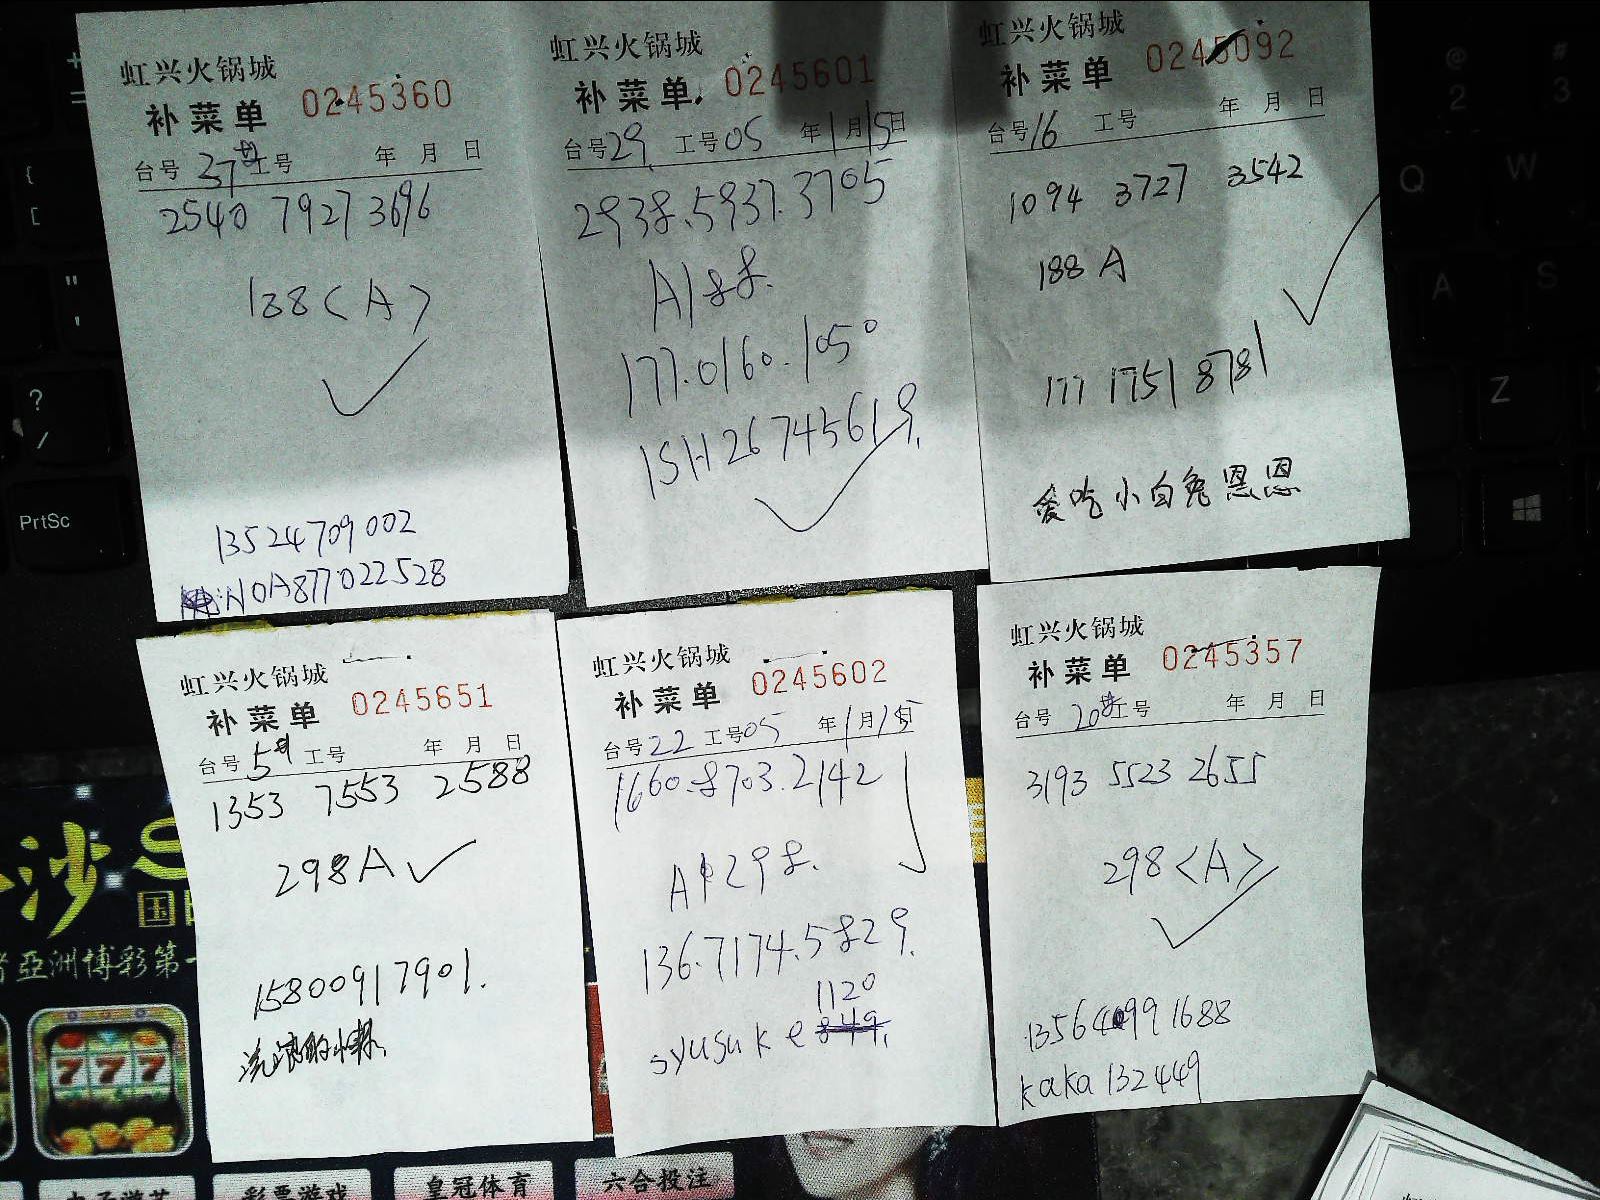 虹兴火锅城
补菜单 0245360
台号 37 工号 年 月 日
2540 7927 3696
188<A>
13524709002
NOA877022528
虹兴火锅城
补菜单 0245601
台号29 工号05 年1月15日
2938.5937.3705
A188.
177.0160.1050
1SH26745619.
虹兴火锅城
补菜单 0245092
台号16 工号 年 月 日
1094 3727 3542
188 A
177 1751 8781
爱吃小白兔恩恩
虹兴火锅城
补菜单 0245651
台号5 工号 年 月 日
1353 7553 2588
298A
15800917901.
虹兴火锅城
补菜单 0245602
台号22 工号05 年1月15日
1660.8703.2142
A 298.
136.7174.5829.
1120
syusuke
虹兴火锅城
补菜单 0245357
台号 20 工号 年 月 日
3193 5523 2655
298<A>
135640991688
kaka132449
PrtSc
@
2
#
3
Q
W
A
S
Z
{
[
"
'
?
/
+
=
沙
国
亞洲博彩第一
777
彩票游戏
皇冠体育
六合投注